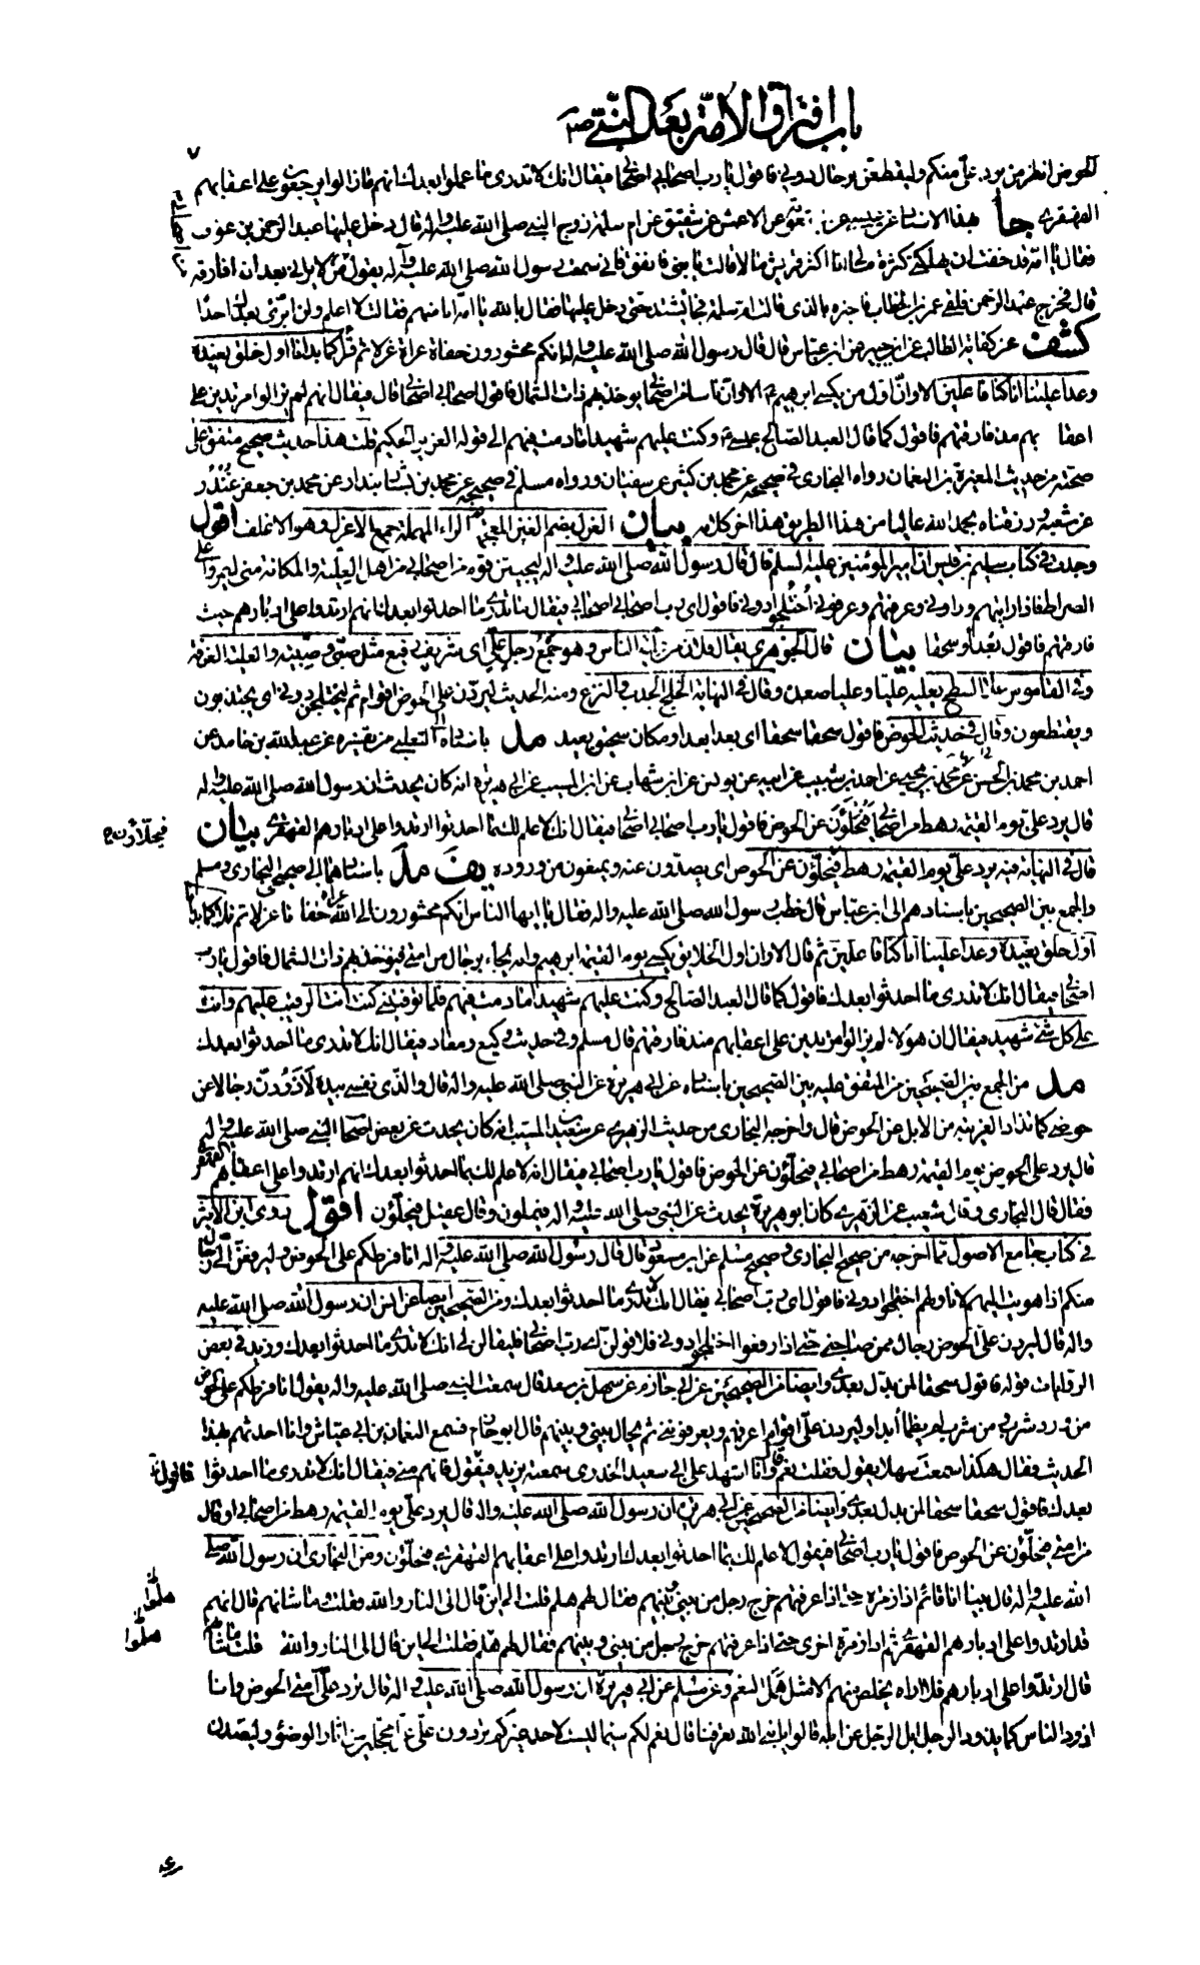 باب افتراق الامة بعد النبي ص
٧
الحوض انظر من يرد علي منكم وليقطعن برجال دوني فاقول يا رب اصحابي اصحابي فيقال انك لا تدري ما عملوا بعدك انهم ما زالوا يرجعون على اعقابهم
القهقرى جا بهذا الاسناد عن عن الاعمش عن شقيق عن ام سلمة زوج النبي صلى الله عليه واله قال دخل عليها عبد الرحمن بن عوف
فقال يا امه قد خفت ان يهلكني كثرة مالي انا اكثر قريش مالا قالت يا بني فانفق فاني سمعت رسول الله صلى الله عليه وآله يقول من لا يراني بعد ان افارقه
قال فخرج عبد الرحمن فلقي عمر بن الخطاب فاخبره بالذي قالت ام سلمة فجاء يشتد حتى دخل عليها فقال بالله يا امه انا منهم فقالت لا اعلم ولن ابرئ بعدك احدا
كشف عن كفاية الطالب عن ابن جبير عن ابن عباس قال قال رسول الله صلى الله عليه واله انكم محشورون حفاة عراة غرلا ثم قرأ كما بدأنا اول خلق نعيده
وعدا علينا انا كنا فاعلين الا وان اول من يكسى ابرهيم الا وان ناسا من اصحابي يؤخذ بهم ذات الشمال فاقول اصحابي اصحابي قال فيقال انهم لم يزالوا مرتدين على
اعقابهم مذ فارقتهم فاقول كما قال العبد الصالح عيسى وكنت عليهم شهيدا ما دمت فيهم الى قوله العزيز الحكيم قلت هذا حديث صحيح متفق على
صحته من حديث المغيرة بن النعمان رواه البخاري في صحيحه عن محمد بن كثير عن سفيان ورواه مسلم في صحيحه عن محمد بن بشار بندار عن محمد بن جعفر غندر
عن شعبة ورزقناه بحمد الله عاليا من هذا الطريق هذا اخر كلامه بيان الغرل بضم الغين المعجمة ثم الراء المهملة جمع الاغرل وهو الاغلف اقول
وجدت في كتاب سليم بن قيس ان امير المؤمنين عليه السلم قال قال رسول الله صلى الله عليه واله ليجيئن قوم من اصحابي من اهل العلية والمكانة مني ليمروا على
الصراط فاذا رايتهم وراوني وعرفتهم وعرفوني اختلجوا دوني فاقول اي رب اصحابي اصحابي فيقال ما تدري ما احدثوا بعدك انهم ارتدوا على ادبارهم حيث
فارقتهم فاقول بعدا وسحقا بيان قال الجوهري يقال فلان من علية الناس وهو جمع رجل علي اي شريف رفيع مثل صبي وصبية والعلية الغرفة
وفي القاموس علا السطح يعليه عليا وعليا صعده وقال في النهاية الخلج الجذب والنزع ومنه الحديث ليردن علي الحوض اقوام ثم ليختلجن دوني اي يجتذبون
ويقتطعون وقال في حديث الحوض فاقول سحقا سحقا اي بعدا بعدا ومكان سحيق بعيد مد باسناده الى الثعلبي من تفسيره عن عبد الله بن حامد عن
احمد بن محمد بن الحسن عن محمد بن يحيى عن احمد بن شبيب عن ابيه عن يونس عن ابن شهاب عن ابن المسيب عن ابي هريرة انه كان يحدث ان رسول الله صلى الله عليه واله
قال يرد علي يوم القيمة رهط من اصحابي فيحلؤن عن الحوض فاقول يا رب اصحابي اصحابي فيقال انك لا علم لك بما احدثوا ارتدوا على ادبارهم القهقرى بيان
فيحلاؤن
قال في النهاية فيه يرد علي يوم القيمة رهط فيحلؤن عن الحوض اي يصدون عنه ويمنعون من وروده يف مد باسنادهما الى صحيحي البخاري ومسلم
والجمع بين الصحيحين باسنادهم الى ابن عباس قال خطب رسول الله صلى الله عليه واله فقال يا ايها الناس انكم محشورون الى الله عراة حفاة غرلا ثم تلا كما بدأنا
اول خلق نعيده وعدا علينا انا كنا فاعلين ثم قال الا وان اول الخلايق يكسى يوم القيمة ابرهيم وانه يجاء برجال من امتي فيؤخذ بهم ذات الشمال فاقول يا رب
اصحابي فيقال انك لا تدري ما احدثوا بعدك فاقول كما قال العبد الصالح وكنت عليهم شهيدا ما دمت فيهم فلما توفيتني كنت انت الرقيب عليهم وانت
على كل شئ شهيد فيقال ان هؤلاء لم يزالوا مرتدين على اعقابهم منذ فارقتهم قال مسلم وفي حديث وكيع ومعاذ فيقال انك لا تدري ما احدثوا بعدك
مد من الجمع بين الصحيحين من المتفق عليه بين الصحيحين باسناده عن ابي هريرة عن النبي صلى الله عليه واله قال والذي نفسي بيده لاذودن رجالا عن
حوضي كما تذاد الغريبة من الابل عن الحوض قال واخرجه البخاري من حديث الزهري عن سعيد بن المسيب انه كان يحدث عن بعض اصحاب النبي صلى الله عليه واله
قال يرد على الحوض يوم القيمة رهط من اصحابي فيحلؤن عن الحوض فاقول يا رب اصحابي فيقال انه لا علم لك بما احدثوا بعدك انهم ارتدوا على اعقابهم القهقرى
فقال قال البخاري وقال شعيب عن الزهري كان ابو هريرة يحدث عن النبي صلى الله عليه واله فيجلون وقال عقيل فيحلؤن اقول روى ابن الاثير
في كتاب جامع الاصول مما اخرجه من صحيح البخاري وصحيح مسلم عن ابن مسعود قال قال رسول الله صلى الله عليه واله انا فرطكم على الحوض وليرفعن الي رجال
منكم اذا هويت اليهم لاناولهم اختلجوا دوني فاقول اي رب اصحابي فيقال انك لا تدري ما احدثوا بعدك ومن الصحيحين ايضا عن انس ان رسول الله صلى الله عليه
واله قال ليردن علي الحوض رجال ممن صاحبني حتى اذا رفعوا اختلجوا دوني فلاقولن اي رب اصحابي فليقالن لي انك لا تدري ما احدثوا بعدك وزيد في بعض
الروايات قوله فاقول سحقا لمن بدل بعدي وايضا من الصحيحين عن ابي حازم عن سهل بن سعد قال سمعت النبي صلى الله عليه واله يقول انا فرطكم على الحوض
من ورد شرب ومن شرب لم يظمأ ابدا وليردن علي اقوام اعرفهم ويعرفونني ثم يحال بيني وبينهم قال ابو حازم فسمع النعمان بن ابي عياش وانا احدثهم بهذا
الحديث فقال هكذا سمعت سهلا يقول فقلت نعم قال وانا اشهد على ابي سعيد الخدري سمعته يزيد فيقول فانهم مني فيقال انك لا تدري ما احدثوا
فاقول
بعدك فاقول سحقا سحقا لمن بدل بعدي وايضا من الصحيحين عن ابي هريرة ان رسول الله صلى الله عليه واله قال يرد علي يوم القيمة رهط من اصحابي او قال
من امتي فيحلؤن عن الحوض فاقول يا رب اصحابي فيقول لا علم لك بما احدثوا بعدك ارتدوا على اعقابهم القهقرى فيحلؤن ومن البخاري ان رسول الله صلى
الله عليه واله قال بينا انا قائم اذا زمرة حتى اذا عرفتهم خرج رجل من بيني وبينهم فقال لهم هلم قلت الى اين قال الى النار والله فقلت وما شانهم قال انهم
هلموا
قد ارتدوا على ادبارهم القهقرى ثم اذا زمرة اخرى حتى اذا عرفتهم خرج رجل من بيني وبينهم فقال لهم هلم فقلت الى اين قال الى النار والله قلت ما شانهم
هلموا
قال ارتدوا على ادبارهم فلا اراه يخلص منهم الا مثل همل النعم وعن مسلم عن ابي هريرة ان رسول الله صلى الله عليه واله قال ترد علي امتي الحوض وانا
اذود الناس كما يذود الرجل ابل الرجل عن ابله قالوا يا نبي الله تعرفنا قال نعم لكم سيما ليست لاحد غيركم تردون علي غرا محجلين من اثار الوضوء وليصدن